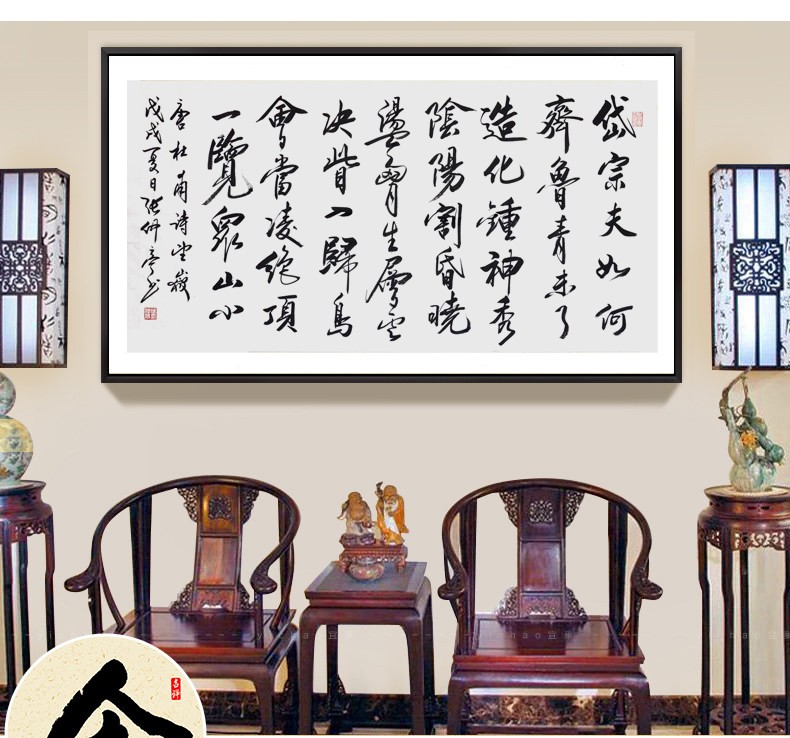 岱宗夫如何
齊魯青未了
造化鍾神秀
陰陽割昏曉
盪胷生層雲
决眥入歸鳥
會當凌絕頂
一覽眾山小
唐杜甫詩望嶽
戊戌夏日張仲亭書